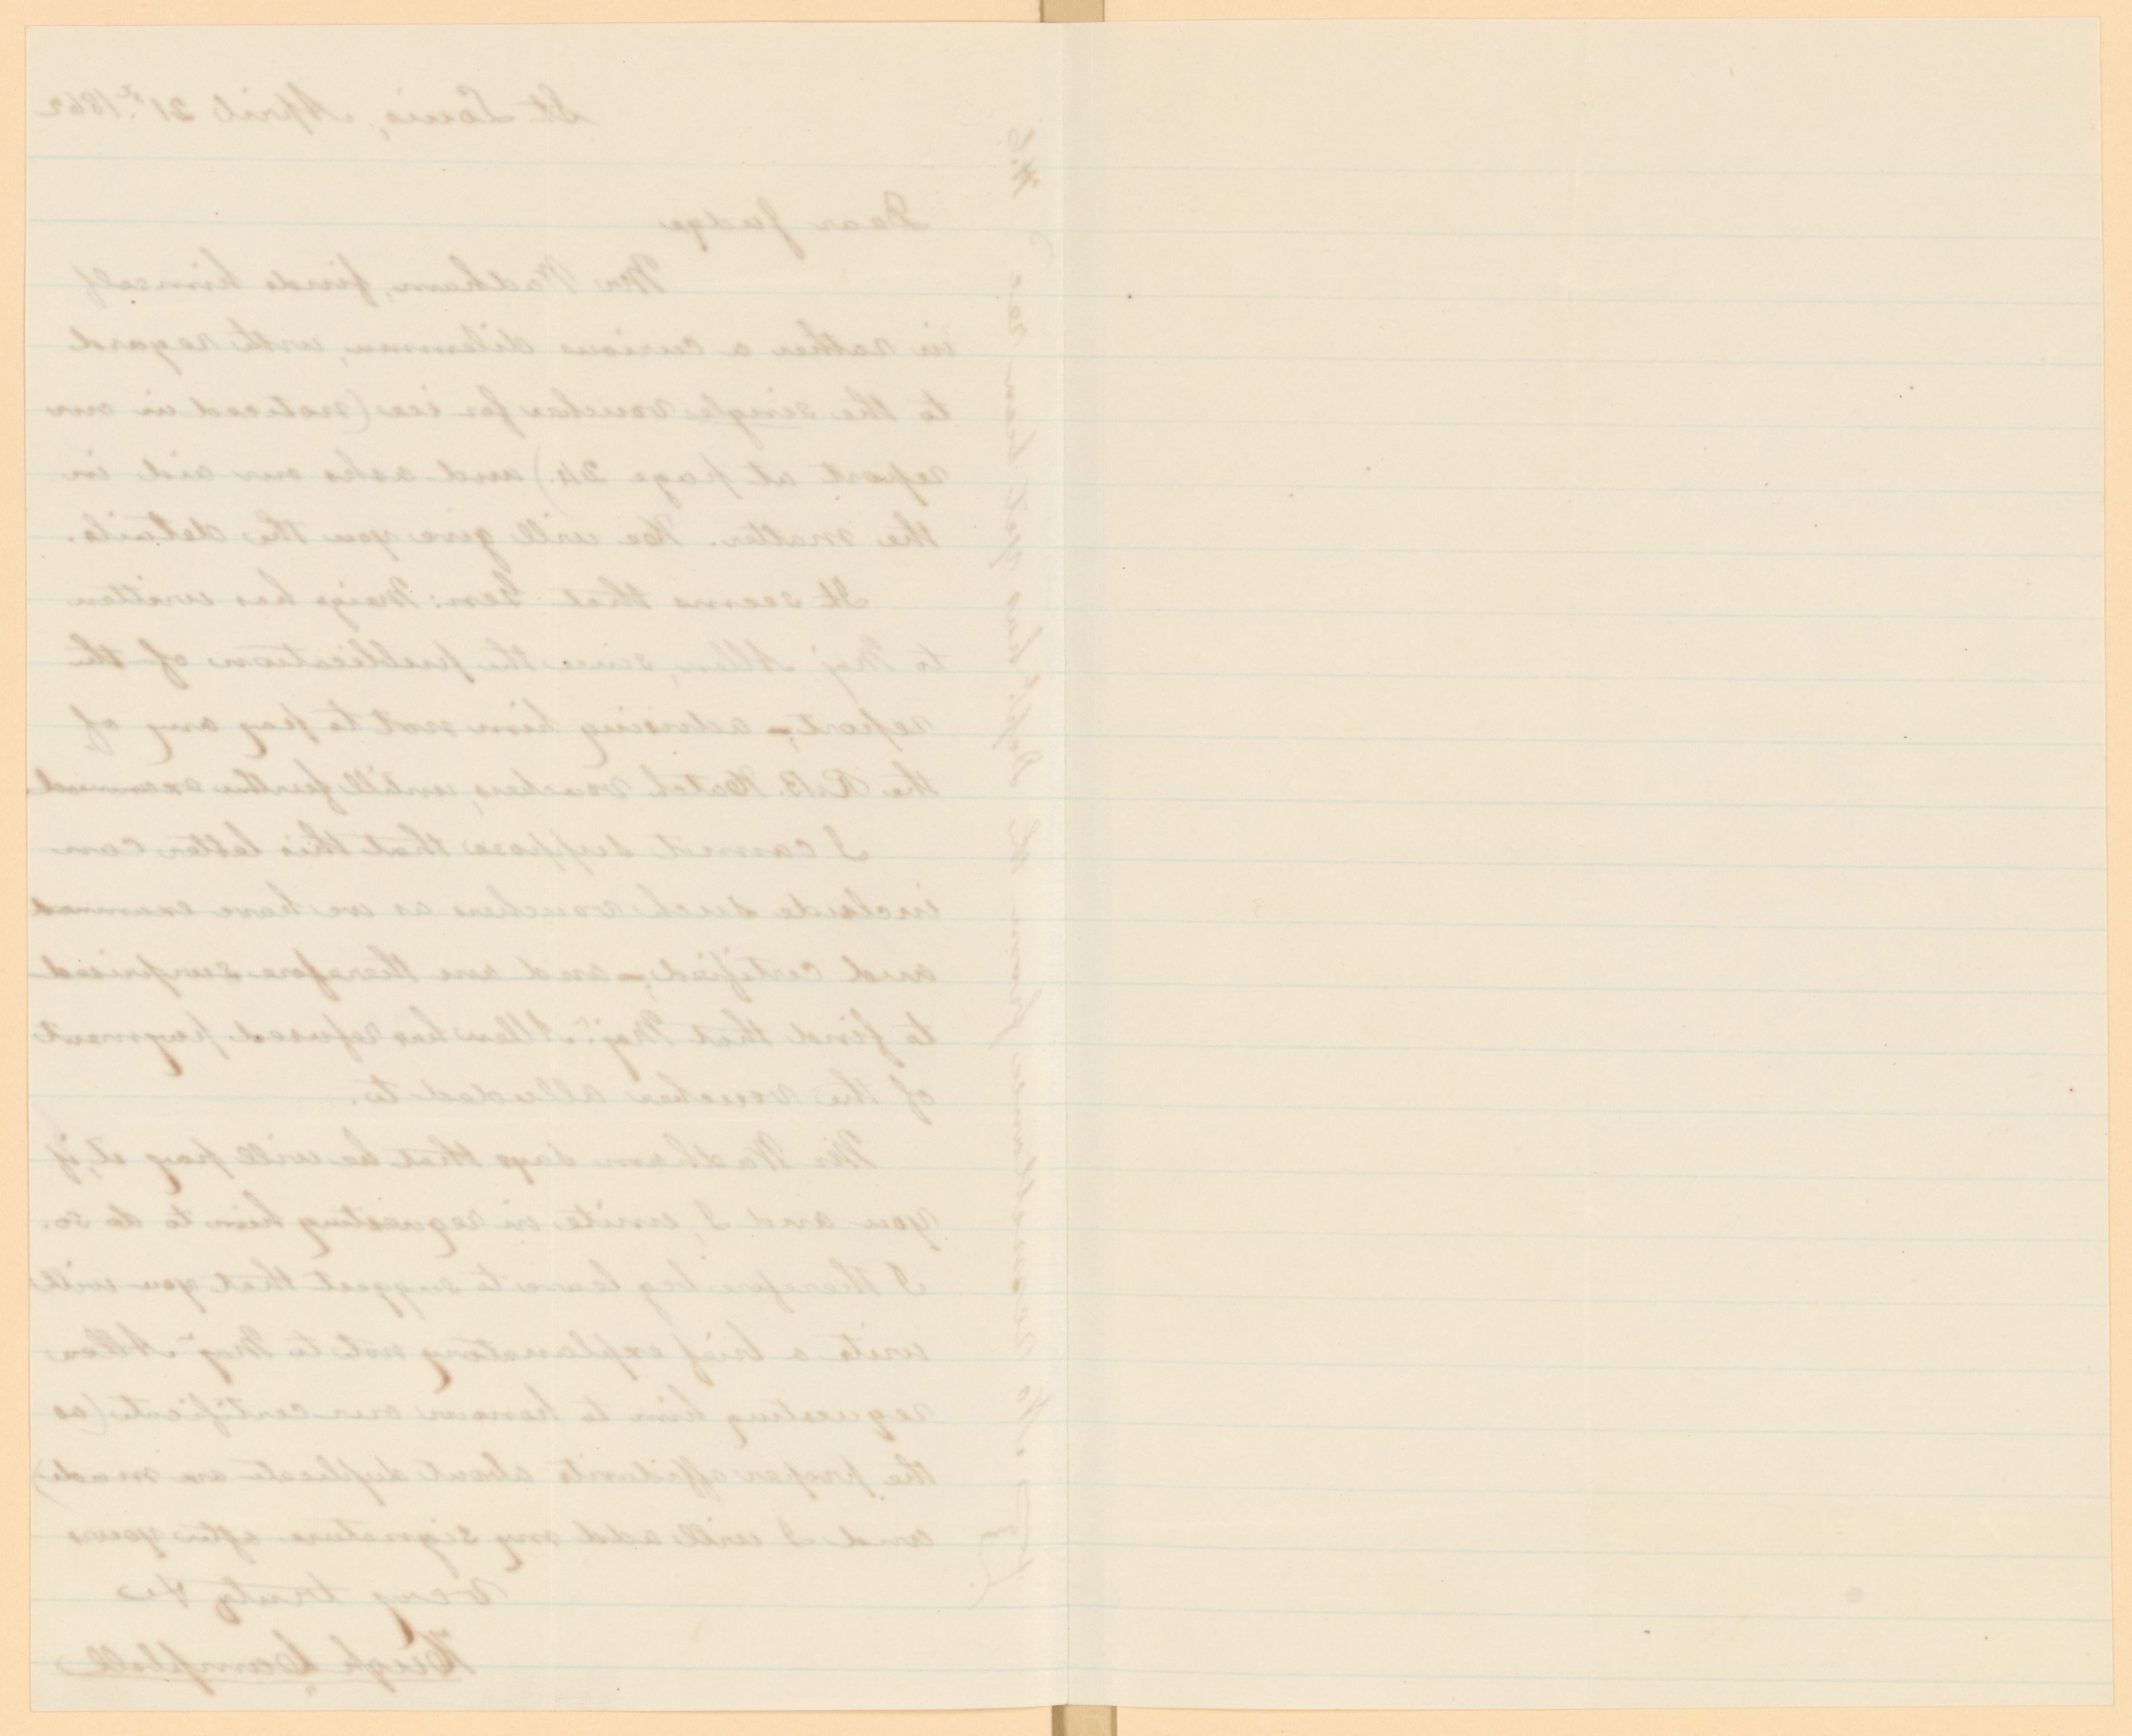 St Louis, April 21st 1862
Dear Judge
Mr Wadham, finds himself
in rather a curious dilemma, with regard
to the single voucher for ice (noticed in our
report at page 24.) and asks our aid in
the matter. He will give you the details.
It seems that Gen: Meigs has written
to Maj Allen, since the publication of the
report,– advising him not to pay any of
the R.B. Hatch vouchers, untill further examined.
I cannot suppose that this letter can
include such vouchers as we have examined
and certified,– and am therefore surprised
to find that Maj: Allen has refused payment
of the voucher alluded to.
Mr Wadham says that he will pay it, if
you and I, unite in requesting him to do so.
I therefore beg leave to suggest that you will
write a brief explanatory note to Maj Allen
requesting him to honour our certificate (as
the proper affidavits about duplicate are made)
and I will add my signature after yours
very truly Yrs
Hugh Campbell